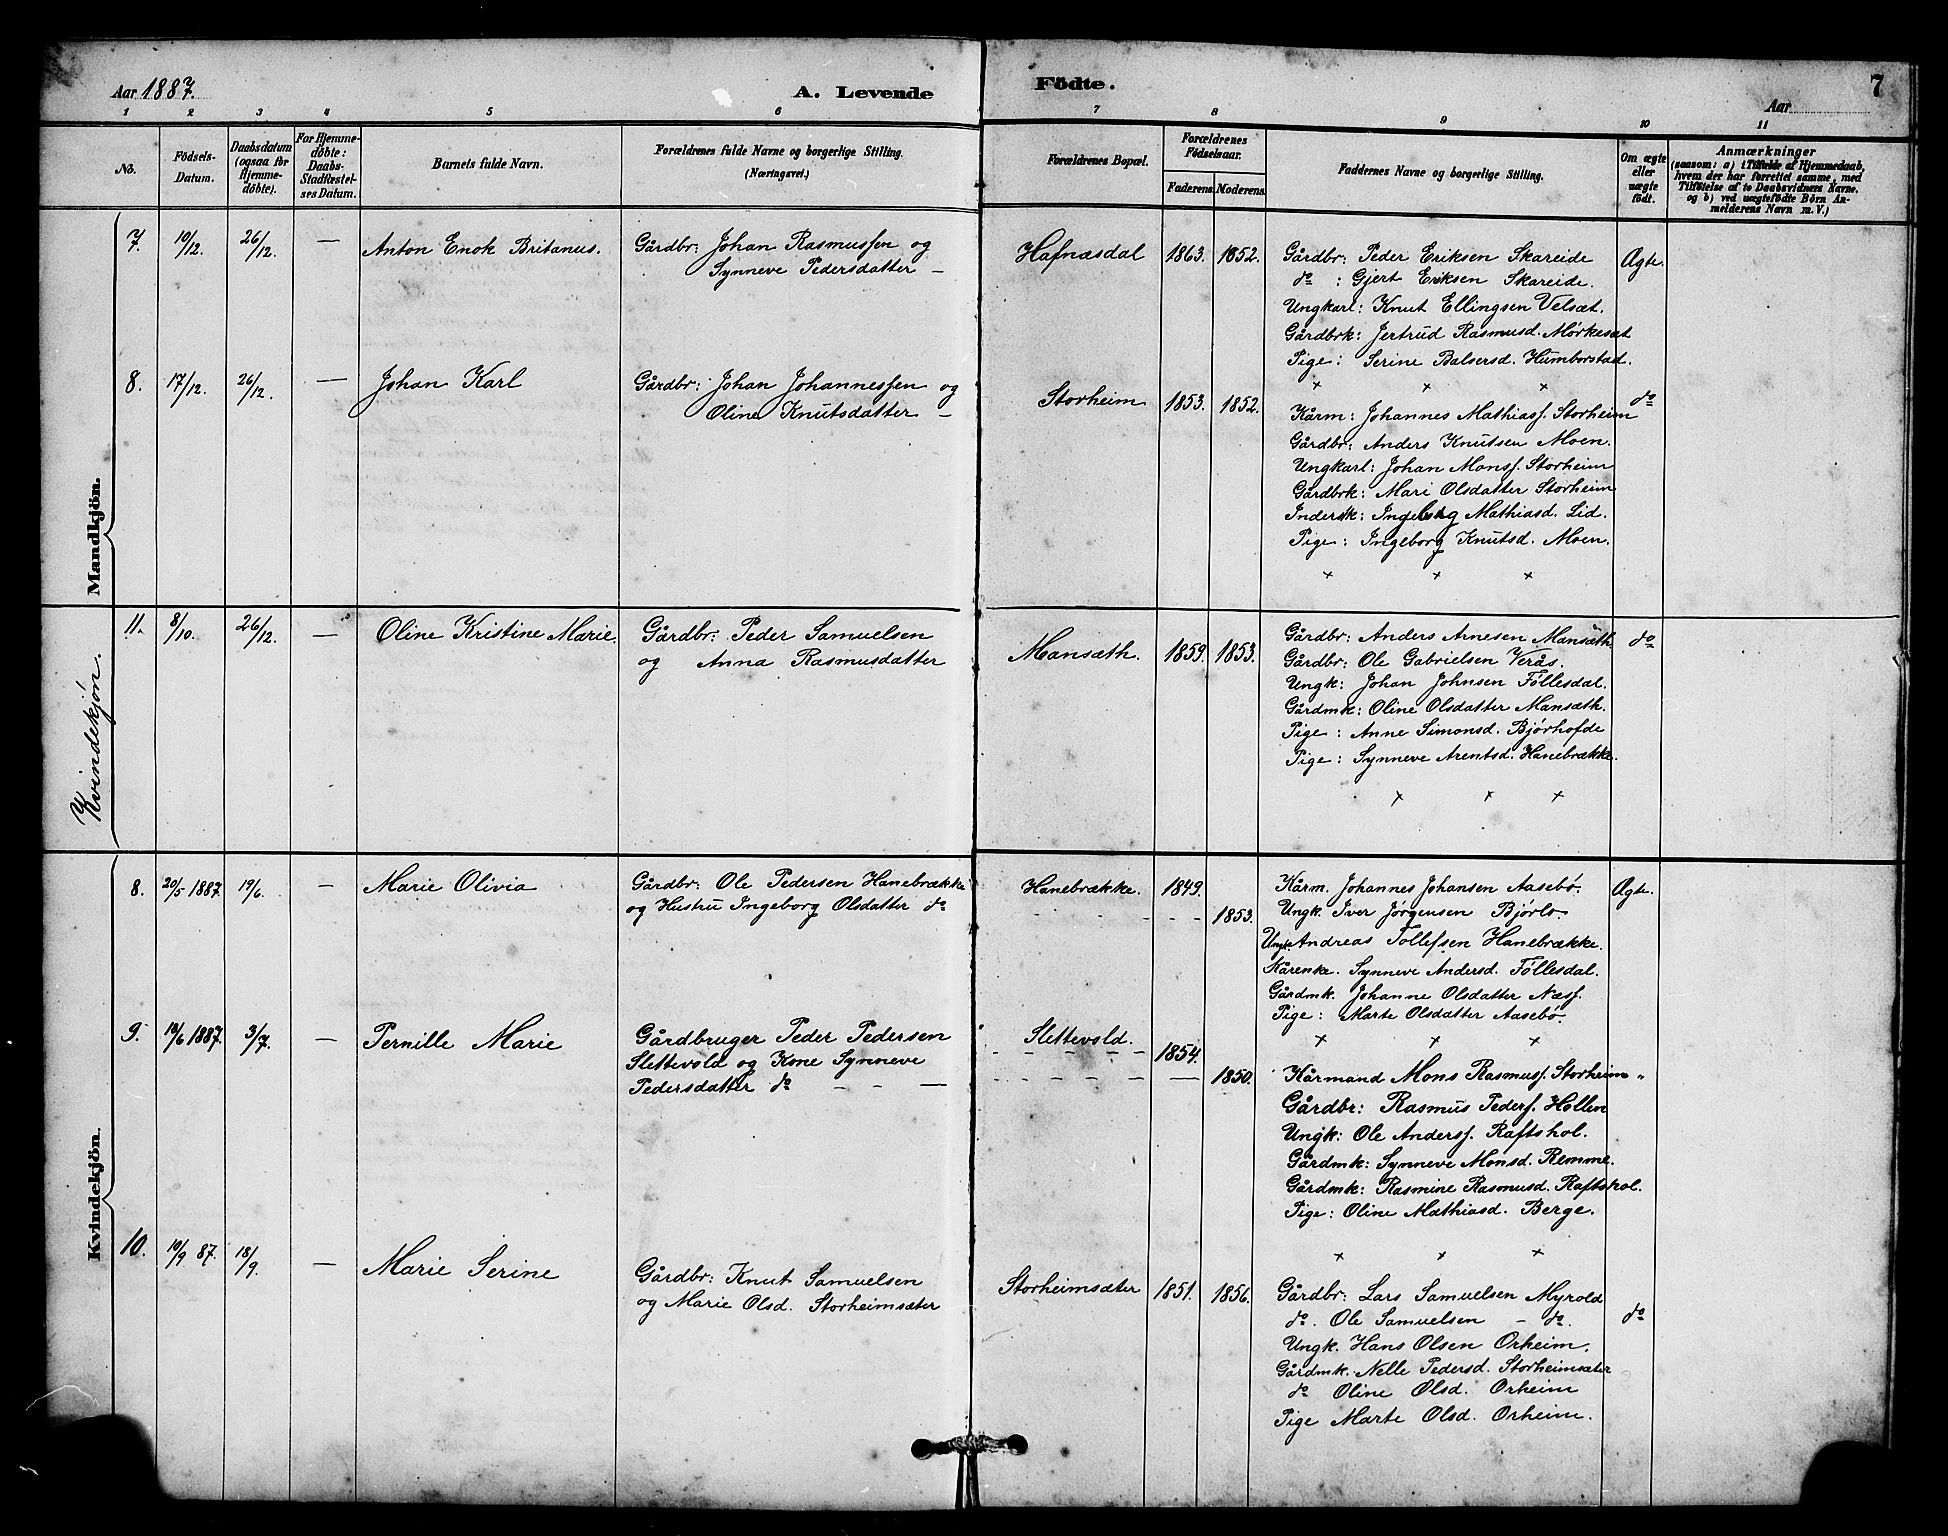 Aar 1887. A. Levende Födte. 7
Aar
1 2 3 4 5 6 7 8 9 10 11
No.
Födsels-
Datum.
Daabsdatum
(ogsaa för
Hjemme-
döbte).
For Hjemme-
döbte:
Daabs-
Stadfæstel-
ses Datum.
Barnets fulde Navn.
Forældrenes fulde Navne og borgerlige Stilling.
(Næringsvei.)
Forældrenes Bopæl.
Forældrenes
Födselsaar.
Faderens. Moderens.
Faddernes Navne og borgerlige Stilling.
Om ægte
eller
uægte
födt.
Anmærkninger
(saasom: a) i Tilfælde af Hjemmedaab,
hvem der har forrettet samme, med
Tilföielse af to Daabsvidners Navne,
og b) ved uægtefödte Börn An-
melderens Navn m. V.)
Mandkjön.
7. 10/12. 26/12. — Anton Enok Britanus.
Gårdbr: Johan Rasmussen og
Synneve Pedersdatter —
Hafnæsdal 1863. 1852.
Gårdbr: Peder Eriksen Skareide
do : Gjert Eriksen Skareide.
Ungkarl: Knut Ellingsen Velsæt.
Gårdbrk: Jertrud Rasmusd. Mørkesæt
Pige: Serine Balsersd. Humborstad.
x x x
Ægte.
8. 17/12. 26/12. — Johan Karl
Gårdbr: Johan Johannessen og
Oline Knutsdatter —
Storheim 1853. 1852.
Kårm: Johannes Mathiass. Storheim
Gårdbr: Anders Knutsen Moen.
Ungkarl: Johan Monss. Storheim
Gårdbrk: Mari Olsdatter Storheim
Indersk: Ingeborg Mathiasd. Lid.
Pige: Ingeborg Knutsd. Moen.
x x x
do
Kvindekjön.
11. 8/10. 26/12. — Oline Kristine Marie.
Gårdbr: Peder Samuelsen
og Anna Rasmusdatter
Mansæth. 1859. 1853.
Gårdbr: Anders Arnesen Mansæth.
Gårdbr: Ole Gabrielsen Verås.
Ungk: Johan Johnsen Föllesdal.
Gårdmk: Oline Olsdatter Mansæth.
Pige: Anne Simonsd. Bjørhofde
Pige: Synneve Arentsd. Hanebrække.
x x x
do
Kvindekjön.
8. 20/5 1887. 19/6. — Marie Olivia
Gårdbr: Ole Pedersen Hanebrække
og Hustru Ingeborg Olsdatter do
Hanebrække. 1849.
1853.
Kårm. Johannes Johansen Aasebø.
Ungk. Iver Jörgensen Bjørlo.
Ungk. Andreas Tollefsen Hanebrække.
Kårenke. Synneve Andersd. Föllesdal.
Gårdmk. Johanne Olsdatter Næss.
Pige: Marte Olsdatter Aasebø.
x x x
Ægte.
9. 19/6 1887. 3/7. — Pernille Marie
Gårdbruger Peder Pedersen
Slettevold og Kone Synneve
Pedersdatter do — — —
Slettevold.
1854.
1850.
Kårmand Mons Rasmuss. Storheim "
Gårdbr: Rasmus Peders. Hollen
Ungk: Ole Anderss. Raftshol.
Gårdmk: Synneve Monsd. Remme.
Gårdmk: Rasmine Rasmusd. Raftshol.
Pige: Oline Mathiasd. Berge.
x x x
10. 10/9 87. 18/9. — Marie Serine
Gårdbr: Knut Samuelsen
og Marie Olsd. Storheimsæter
Storheimsæter 1851. 1856.
Gårdbr: Lars Samuelsen Myrold
do. Ole Samuelsen — do.
Ungk. Hans Olsen Orheim.
Gårdmk. Nelle Pedersd. Storheimsæter
do Oline Olsd. Orheim
Pige Marte Olsd. Orheim.
do